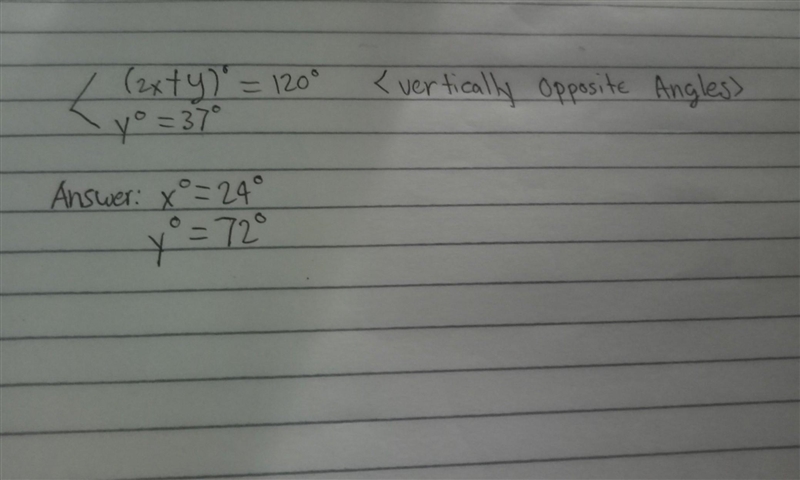 (2x+y)° = 120° <vertically opposite Angles>
y° = 37°
Answer: x° = 24°
y° = 72°